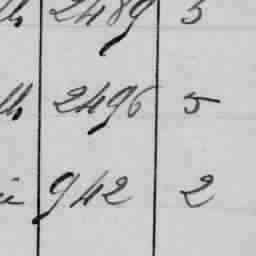 2489 5
2496 5
942 2